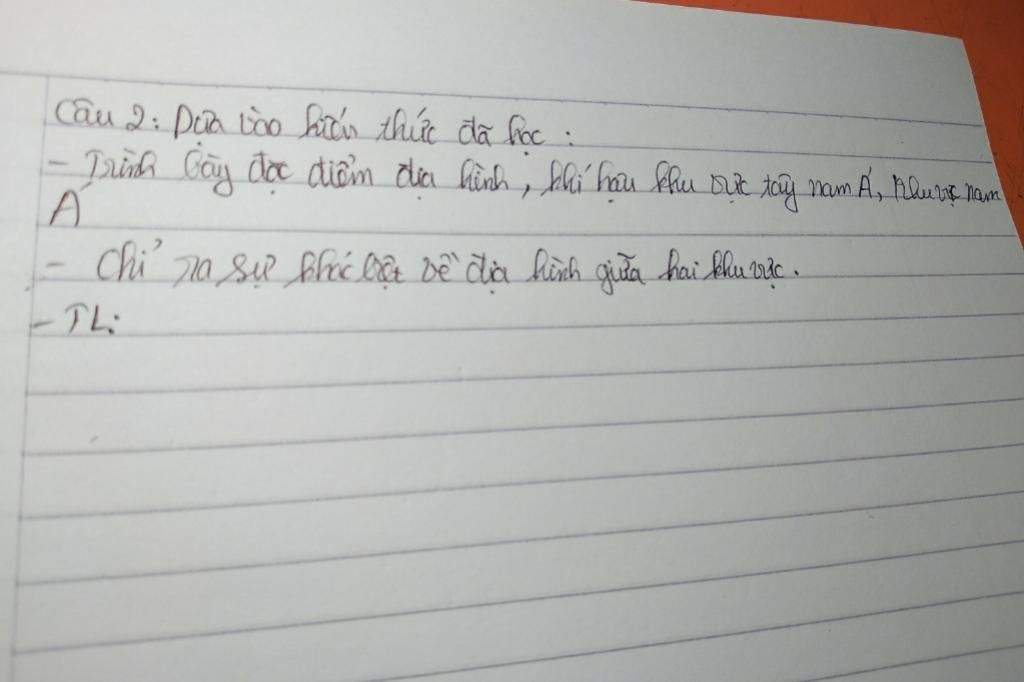 Câu 2: Dựa vào kiến thức đã học :
- Trình bày đặc điểm địa hình, khí hậu khu vực tây nam Á, khu vực nam
Á
- Chỉ ra sự khác biệt về địa hình giữa hai khu vực.
- TL: